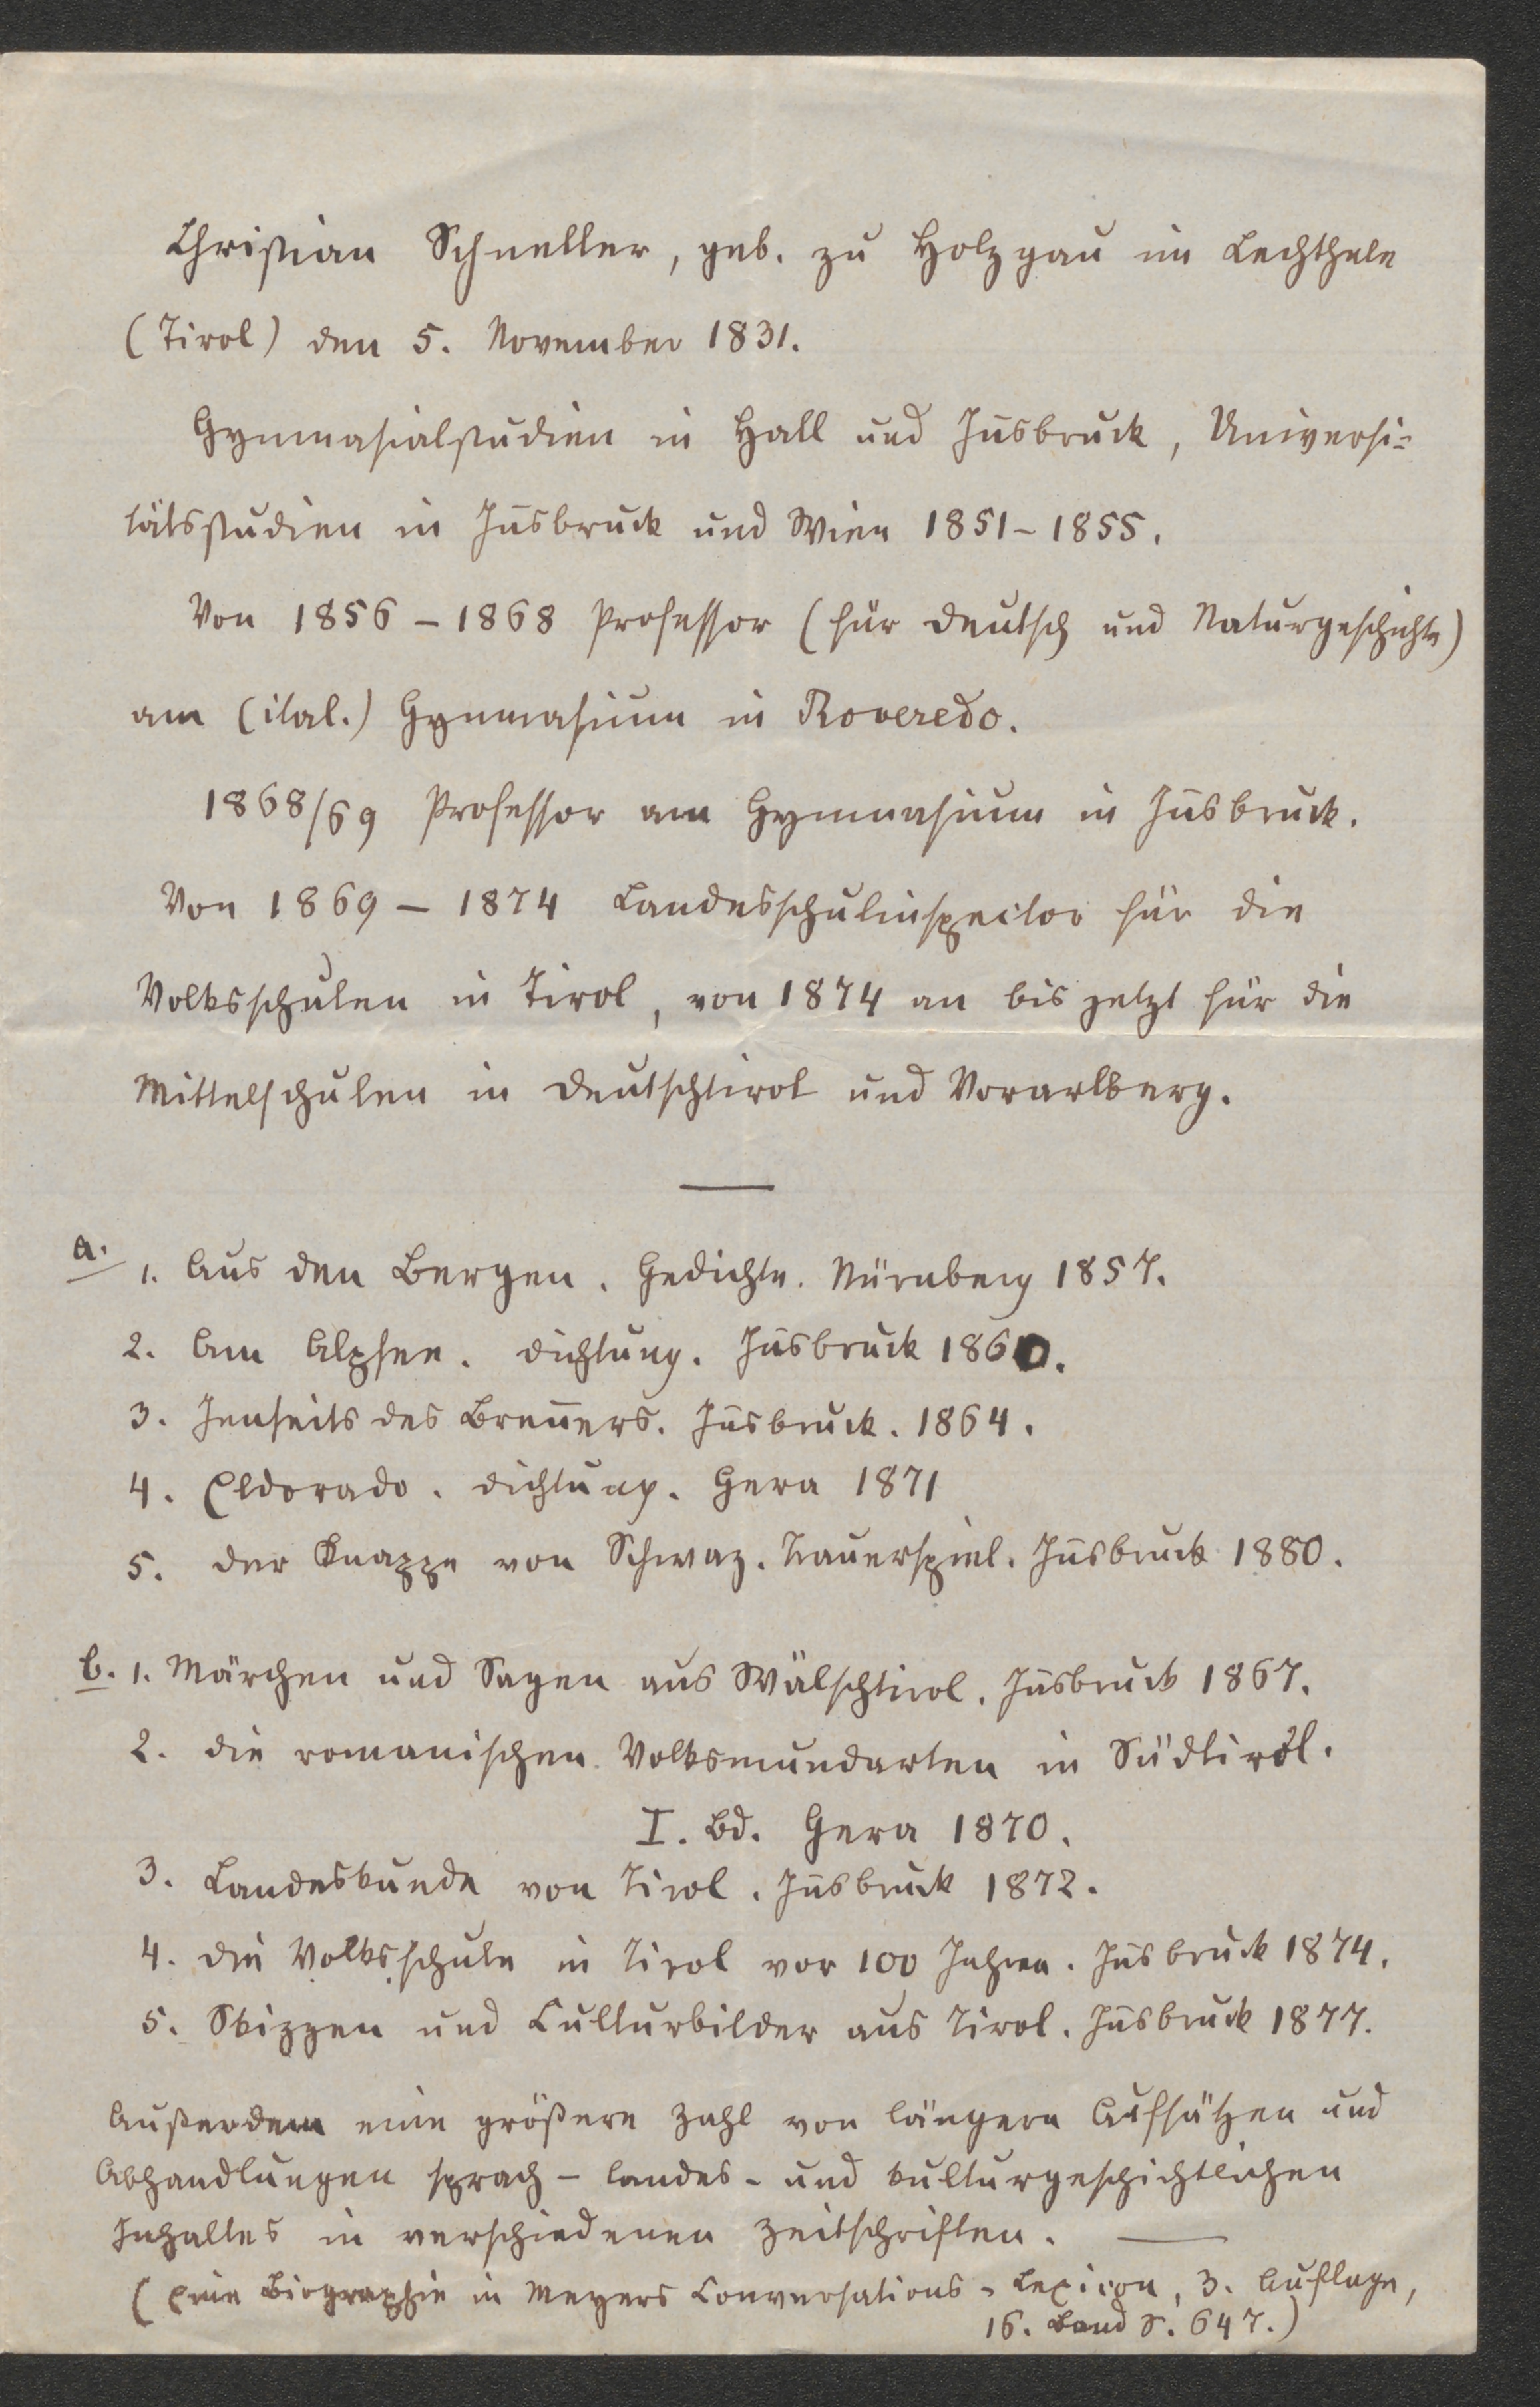 Christian Schneller, geb. zu Holzgau im Lechthale
(Tirol) den 5. November 1831.
Gymnasialstudien in Hall und Iñsbruck, Universi-
tätsstudien in Iñsbruck und Wien 1851-1855.
Von 1856 - 1868 Professor (für Deutsch und Naturgeschichte)
am (ital.) Gymnasium in Roveredo.
1868/69 Professor am Gymnasium in Iñsbruck.
Von 1869 - 1874 Landesschulinspector für die
Volksschulen in Tirol, von 1874 an bis jetzt für die
Mittelschulen in Deutschtirol und Vorarlberg.
a. 1. Aus den Bergen. Gedichte. Nürnberg 1857.
2. Am Alpsee. Dichtung. Iñsbruck 1860.
3. Jenseits des Breñers. Iñsbruck. 1864.
4. Eldorado. Dichtung. Gera 1871
5. Der Knappe von Schwaz. Trauerspiel. Iñsbruck 1880.
b. 1. Märchen und Sagen aus Wälschtirol. Iñsbruck 1867.
2. Die romanischen Volksmundarten in Südtirol.
I. Bd. Gera 1870.
3. Landeskunde von Tirol. Iñsbruck 1872.
4. Die Volksschule in Tirol vor 100 Jahren. Iñsbruck 1874.
5. Skizzen und Culturbilder aus Tirol. Iñsbruck 1877.
Außerdem eine größere Zahl von längern Aufsätzen und
Abhandlungen sprach- landes- und kulturgeschichtlichen
Inhaltes in verschiedenen Zeitschriften.
(Eine Biographie in Meyers Conversations-Lexicon, 3. Auflage,
16. Band S. 647.)